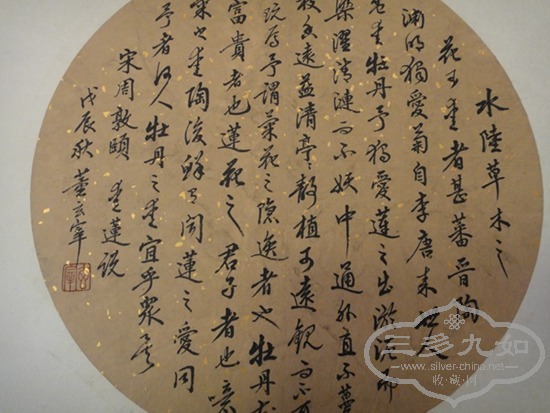 水陸草木之
花可愛者甚蕃晉陶
淵明獨愛菊自李唐来世人
甚愛牡丹予獨愛蓮之出淤泥而
染濯清漣而不妖中通外直不蔓
枝香遠益清亭々静植可遠觀而不可
玩焉予謂菊花之隐逸者也牡丹花
富貴者也蓮花之君子者也噫
菊之愛陶後鮮有闻蓮之愛同
予者何人牡丹之愛宜乎眾矣
宋周敦頤 愛蓮說
戊辰秋 董
三多九如
www.silver-china.net
收·藏·网